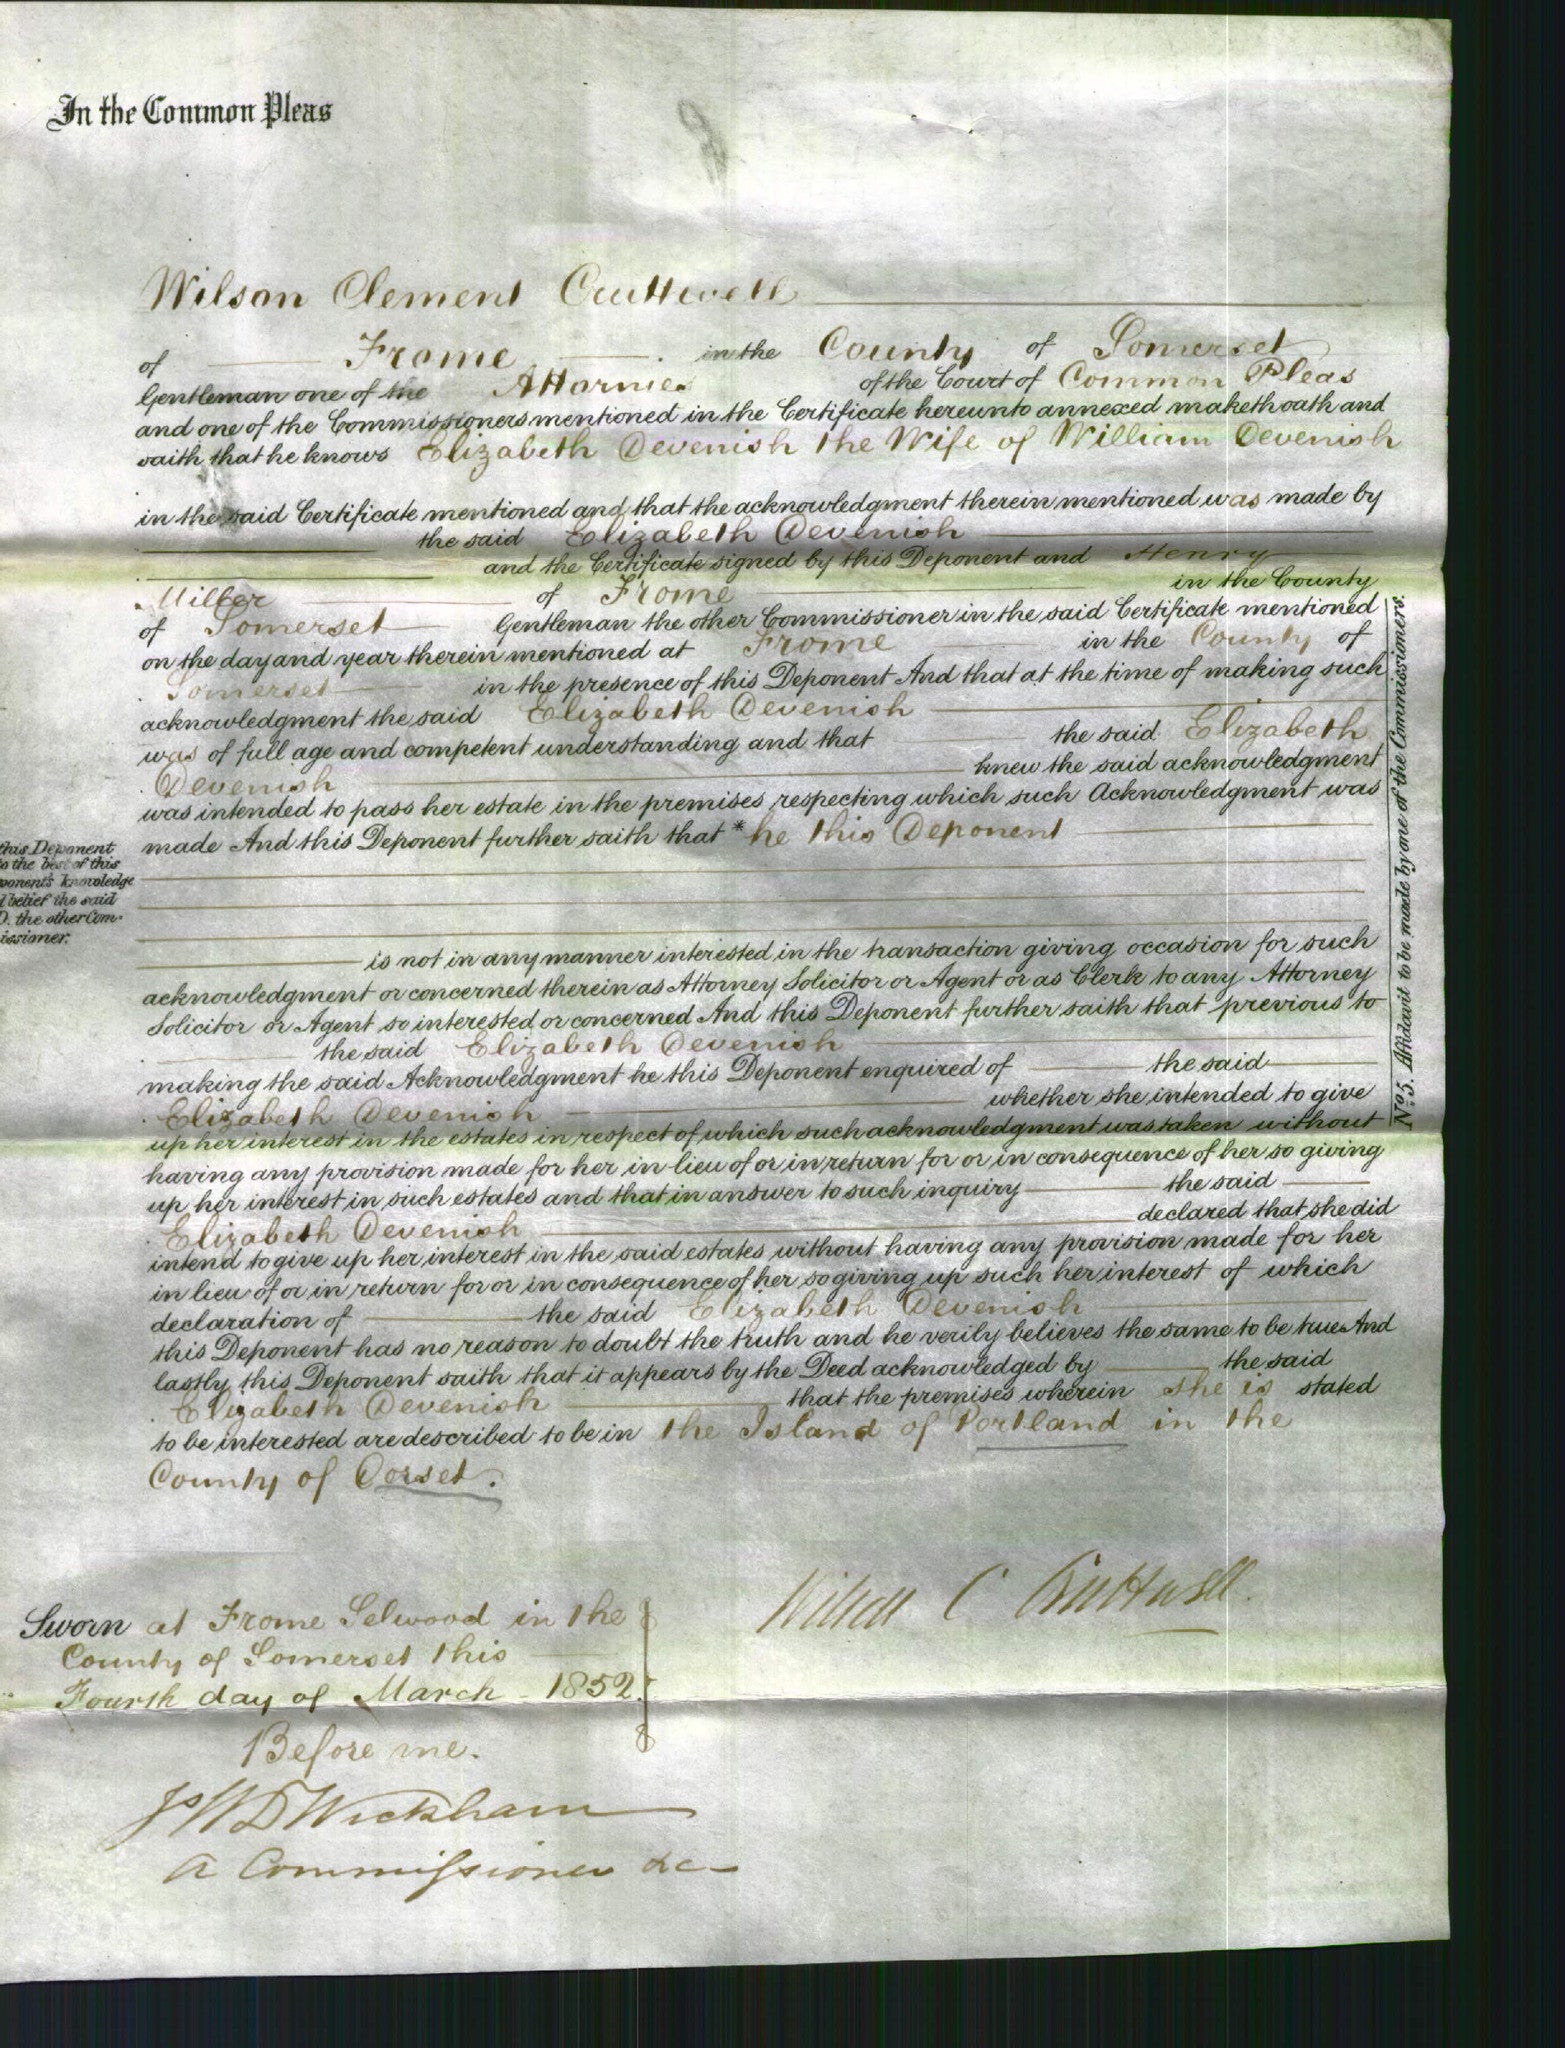 In the Common Pleas
Wilson Clement Cruttwell
of Frome in the County of Somerset
Gentleman one of the Attornies of the Court of Common Pleas
and one of the Commissioners mentioned in the Certificate hereunto annexed maketh oath and
saith that he knows Elizabeth Devenish the Wife of William Devenish
in the said Certificate mentioned and that the acknowledgment therein mentioned was made by
the said Elizabeth Devenish
and the Certificate signed by this Deponent and Henry
Miller of Frome in the County
of Somerset Gentleman the other Commissioner in the said Certificate mentioned
on the day and year therein mentioned at Frome in the County of
Somerset in the presence of this Deponent And that at the time of making such
acknowledgment the said Elizabeth Devenish
was of full age and competent understanding and that the said Elizabeth
Devenish knew the said acknowledgment
was intended to pass her estate in the premises respecting which such Acknowledgment was
made And this Deponent further saith that * he this Deponent
this Deponent
to the best of this
ponent's knowledge
d belief the said
D. the other Com-
issioner.
is not in any manner interested in the transaction giving occasion for such
acknowledgment or concerned therein as Attorney Solicitor or Agent or as Clerk to any Attorney
Solicitor or Agent so interested or concerned And this Deponent further saith that previous to
the said Elizabeth Devenish
making the said Acknowledgment he this Deponent enquired of the said
Elizabeth Devenish whether she intended to give
up her interest in the estates in respect of which such acknowledgment was taken without
having any provision made for her in lieu of or in return for or in consequence of her so giving
up her interest in such estates and that in answer to such inquiry the said
Elizabeth Devenish declared that she did
intend to give up her interest in the said estates without having any provision made for her
in lieu of or in return for or in consequence of her so giving up such her interest of which
declaration of the said Elizabeth Devenish
this Deponent has no reason to doubt the truth and he verily believes the same to be true And
lastly this Deponent saith that it appears by the Deed acknowledged by the said
Elizabeth Devenish that the premises wherein she is stated
to be interested are described to be in the Island of Portland in the
County of Dorset.
No. 5. Affidavit to be made by one of the Commissioners.
Wilson C Cruttwell.
Sworn at Frome Selwood in the
County of Somerset this
Fourth day of March 1852.
Before me.
Js W D Wickham
a Commissioner &c